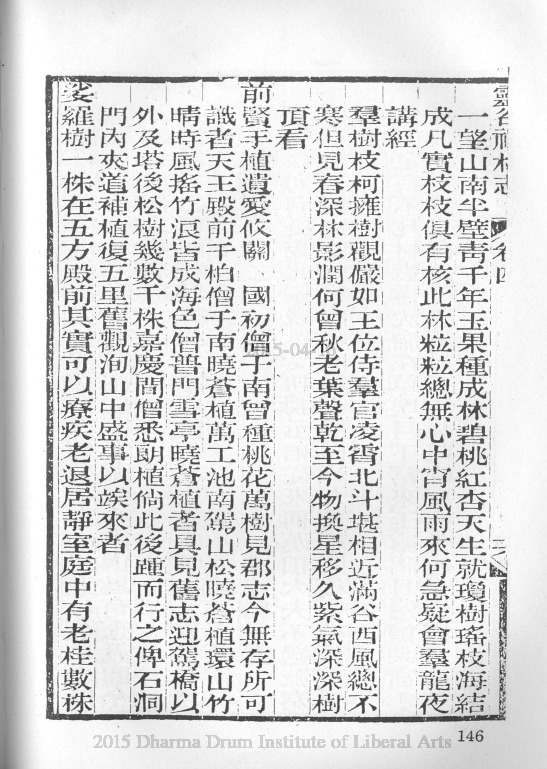 靈谷禪林志 卷四
一望山南半壁靑千年玉果種成林碧桃紅杏天生就瓊樹瑤枝海結
成凡實枝枝俱有核此林粒粒總無心中宵風雨來何急疑會羣龍夜
講經
羣樹枝柯擁樹觀儼如王位侍羣官凌霄北斗堪相近滿谷西風總不
寒但見春深林影潤何曾秋老葉聲乾至今物換星移久紫氣深深樹
頂看
前賢手植遺愛攸關 國初僧子南曾種桃花萬樹見郡志今無存所可
識者天王殿前千柏僧子南曉蒼植萬工池南駕山松曉蒼植環山竹
晴時風搖竹淚皆成海色僧普門雪亭曉蒼植者具見舊志迎駕橋以
外及塔後松樹幾數千株嘉慶間僧悉朗植倘此後踵而行之俾石洞
門內夾道補植復五里舊觀洵山中盛事以竢來者
娑羅樹一株在五方殿前其實可以療疾老退居靜室庭中有老桂數株
146
2015 Dharma Drum Institute of Liberal Arts